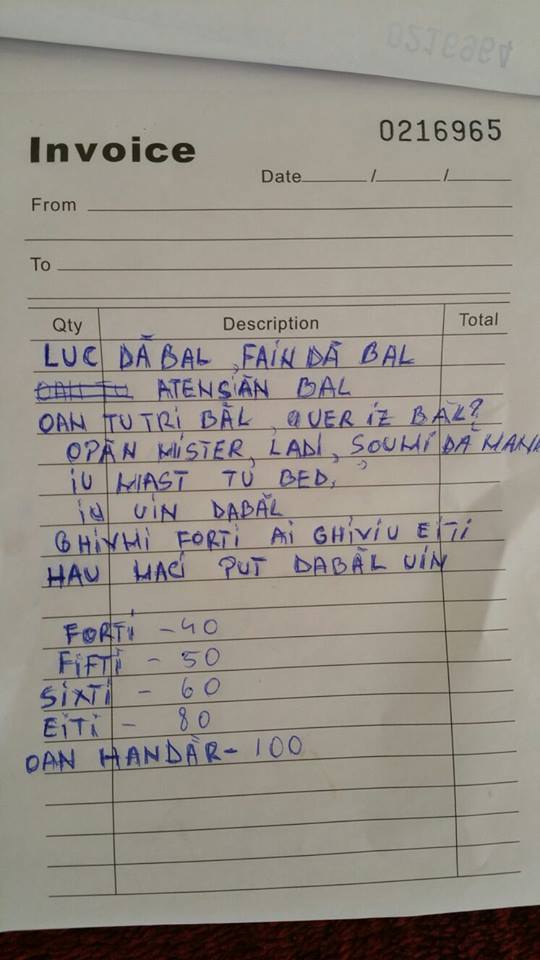 0216964
Invoice 0216965
Date / /
From
To
Qty Description Total
LUC DĂ BAL, FAIN DĂ BAL
ATENȘĂN BAL
OAN TU TRI BĂL, QUER IZ BĂL?
OPĂN MISTER, LADI, SOUMI DĂ MANI
IU MAST TU BED,
IU UIN DABĂL
GHIVMI FORTI AI GHIVIU EITI
HAU MACI PUT DABĂL UIN
FORTI - 40
FIFTI - 50
SIXTI - 60
EITI - 80
OAN HANDĂR - 100